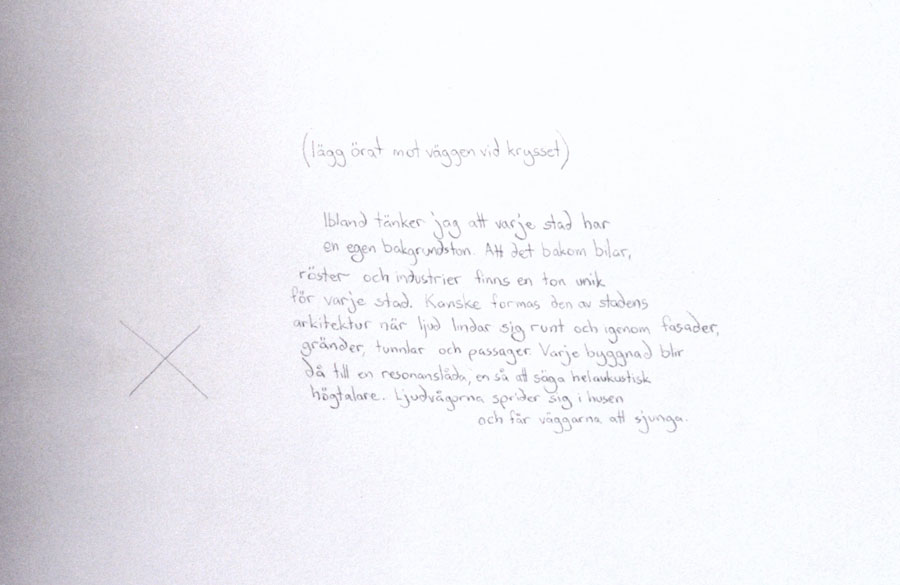 (lägg örat mot väggen vid krysset)
Ibland tänker jag att varje stad har
en egen bakgrundston. Att det bakom bilar,
röster och industrier finns en ton unik
för varje stad. Kanske formas den av stadens
arkitektur när ljud lindar sig runt och igenom fasader,
gränder, tunnlar och passager. Varje byggnad blir
då till en resonanslåda, en så att säga helaukustisk
högtalare. Ljudvågorna sprider sig i husen
och får väggarna att sjunga.